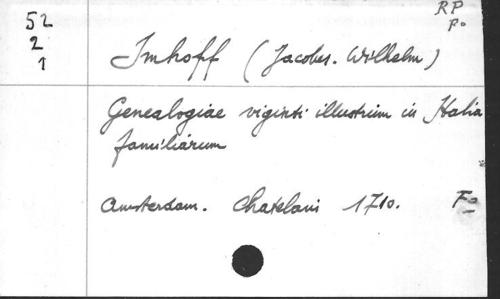 RP
Fo
52
2
1
Imhoff (Jacobus. Wilhelm)
Genealogiae viginti illustrium in Italia
familiarum
Amsterdam. Chatelani 1710. Fo